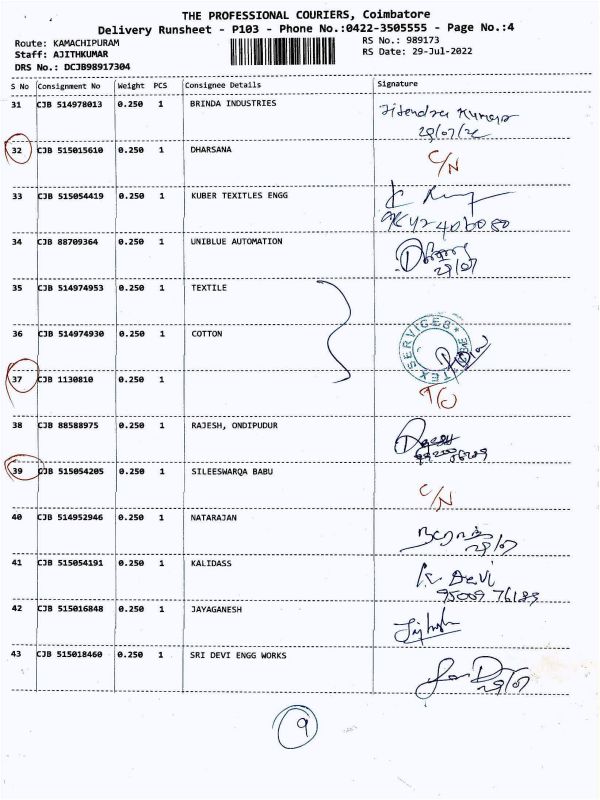 THE PROFESSIONAL COURIERS, Coimbatore
Delivery Runsheet - P103 - Phone No.:0422-3505555 - Page No.:4
Route: KAMACHIPURAM RS No.: 989173
Staff: AJITHKUMAR RS Date: 29-Jul-2022
DRS No.: DCJB98917304
S No Consignment No Weight PCS Consignee Details Signature
31 CJB 514978013 0.250 1 BRINDA INDUSTRIES Jitendra Kumar
29/07/22
32 CJB 515015610 0.250 1 DHARSANA C/N
33 CJB 515054419 0.250 1 KUBER TEXITLES ENGG K
34 CJB 88709364 0.250 1 UNIBLUE AUTOMATION
29/07
35 CJB 514974953 0.250 1 TEXTILE
36 CJB 514974930 0.250 1 COTTON SERVICES
37 CJB 1130810 0.250 1
38 CJB 88588975 0.250 1 RAJESH, ONDIPUDUR
39 CJB 515054205 0.250 1 SILEESWARQA BABU C/N
40 CJB 514952946 0.250 1 NATARAJAN
29/07
41 CJB 515054191 0.250 1 KALIDASS K Devi
95009 76189
42 CJB 515016848 0.250 1 JAYAGANESH
43 CJB 515018460 0.250 1 SRI DEVI ENGG WORKS
29/07
9